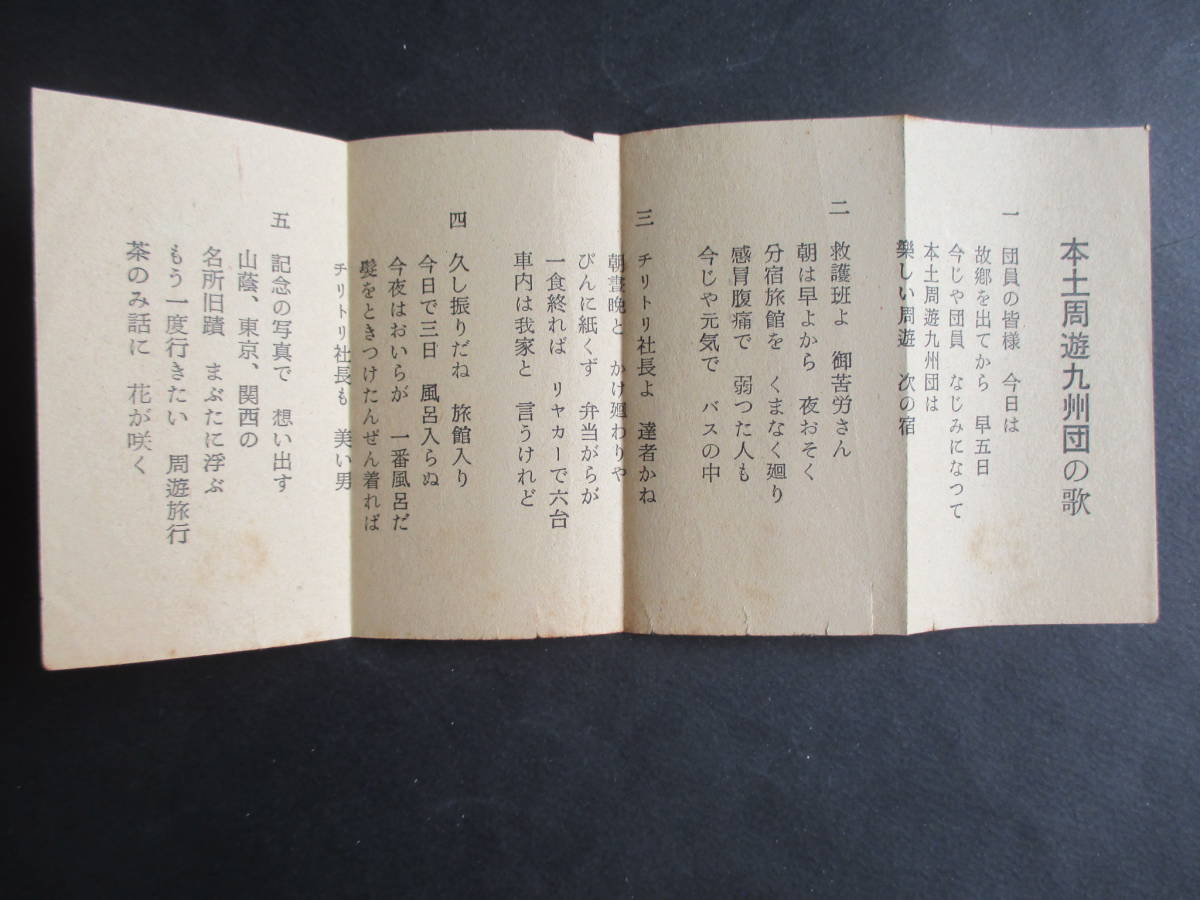 本土周遊九州団の歌
一 団員の皆様 今日は
故郷を出てから 早五日
今じや団員 なじみになつて
本土周遊九州団は
樂しい周遊 次の宿
二 救護班よ 御苦労さん
朝は早よから 夜おそく
分宿旅館を くまなく廻り
感冒腹痛で 弱つた人も
今じや元気で バスの中
三 チリトリ社長よ 達者かね
朝晝晩と かけ廻わりや
びんに紙くず 弁当がらが
一食終れば リヤカーで六台
車内は我家と 言うけれど
四 久し振りだね 旅館入り
今日で三日 風呂入らぬ
今夜はおいらが 一番風呂だ
髮をときつけたんぜん着れば
チリトリ社長も 美い男
五 記念の写真で 想い出す
山蔭、東京、関西の
名所旧蹟 まぶたに浮ぶ
もう一度行きたい 周遊旅行
茶のみ話に 花が咲く